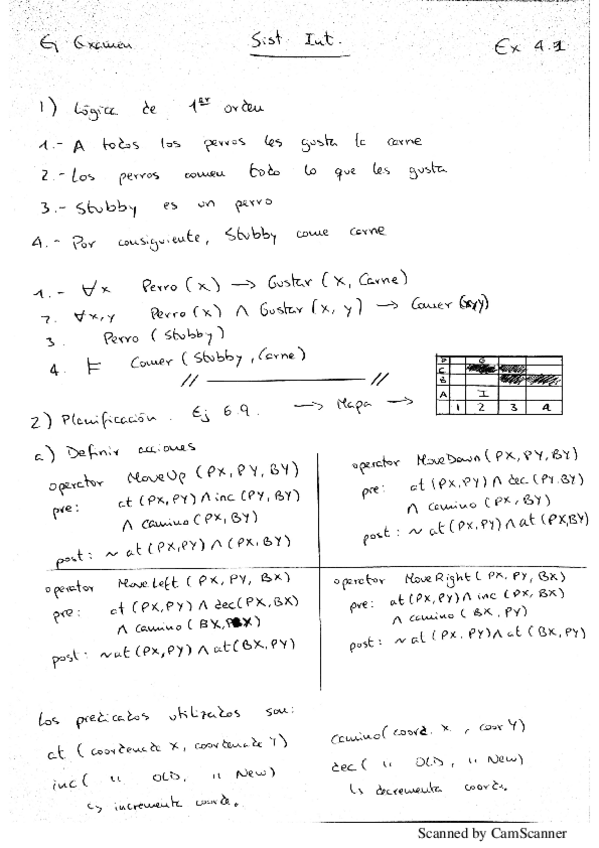 Ej Examen
Sist. Int.
Ex 4.1
1) Lógica de 1er orden
1.- A todos los perros les gusta la carne
2.- Los perros comen todo lo que les gusta
3.- Stubby es un perro
4.- Por consiguiente, Stubby come carne
1.- ∀x Perro (x) → Gustar (x, Carne)
2. ∀x,y Perro (x) ∧ Gustar (x, y) → Comer (x,y)
3. Perro (Stubby)
4. ⊨ Comer (Stubby, Carne)
2) Planificación. Ej 6.9. → Mapa →
D G
C
B
A I
1 2 3 4
a) Definir acciones
operator MoveUp (PX, PY, BY)
pre: at (PX, PY) ∧ inc (PY, BY)
∧ camino (PX, BY)
post: ~ at (PX, PY) ∧ (PX, BY)
operator MoveDown (PX, PY, BY)
pre: at (PX, PY) ∧ dec (PY, BY)
∧ camino (PX, BY)
post: ~ at (PX, PY) ∧ at (PX, BY)
operator MoveLeft (PX, PY, BX)
pre: at (PX, PY) ∧ dec (PX, BX)
∧ camino (BX, P X)
post: ~ at (PX, PY) ∧ at (BX, PY)
operator MoveRight (PX, PY, BX)
pre: at (PX, PY) ∧ inc (PX, BX)
∧ camino (BX, PY)
post: ~ at (PX, PY) ∧ at (BX, PY)
Los predicados utilizados son:
at (coordenada X, coordenada Y)
inc ( " OLD, " New)
↳ incrementa coorde.
camino (coord. x, coor Y)
dec ( " OLD, " New)
↳ decrementa coorde.
Scanned by CamScanner